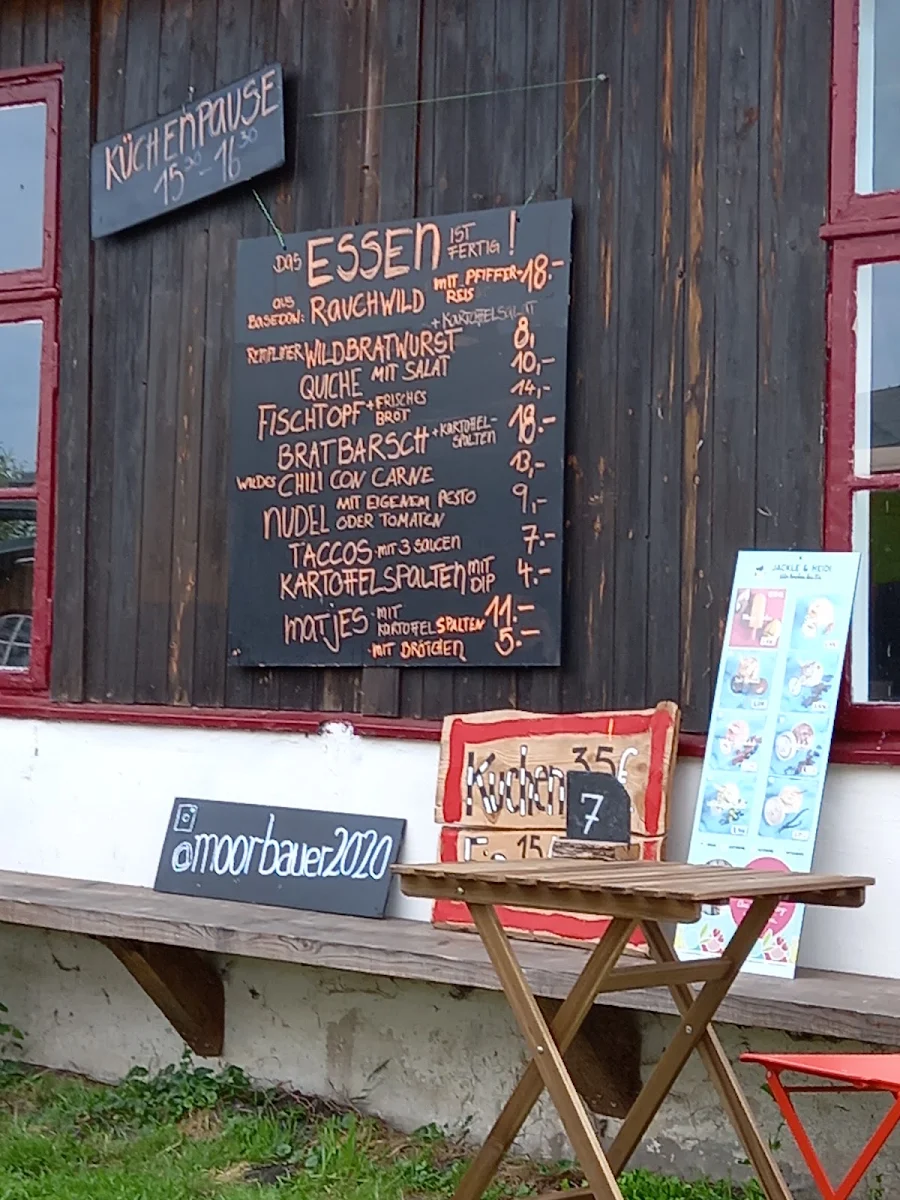 KÜCHENPAUSE
15³⁰ - 16³⁰
DAS ESSEN IST FERTIG !
AUS BASEDOW: RAUCHWILD MIT PFIFFER- REIS 18.-
+ KARTOFFELSALAT
REMPLINER WILDBRATWURST 8,
QUICHE MIT SALAT 10,-
FISCHTOPF + FRISCHES BROT 14,-
BRATBARSCH + KARTOFFEL- SPALTEN 18.-
WILDES CHILI CON CARNE 13,-
NUDEL MIT EIGENEM PESTO ODER TOMATEN 9,-
TACCOS MIT 3 SAUCEN 7.-
KARTOFFELSPALTEN MIT DIP 4.-
MATJES - MIT KARTOFFELSPALTEN 11.-
- MIT BRÖTCHEN 5.-
JACKLE & HEIDI
Kuchen 35€
7
15
@moorbauer2020